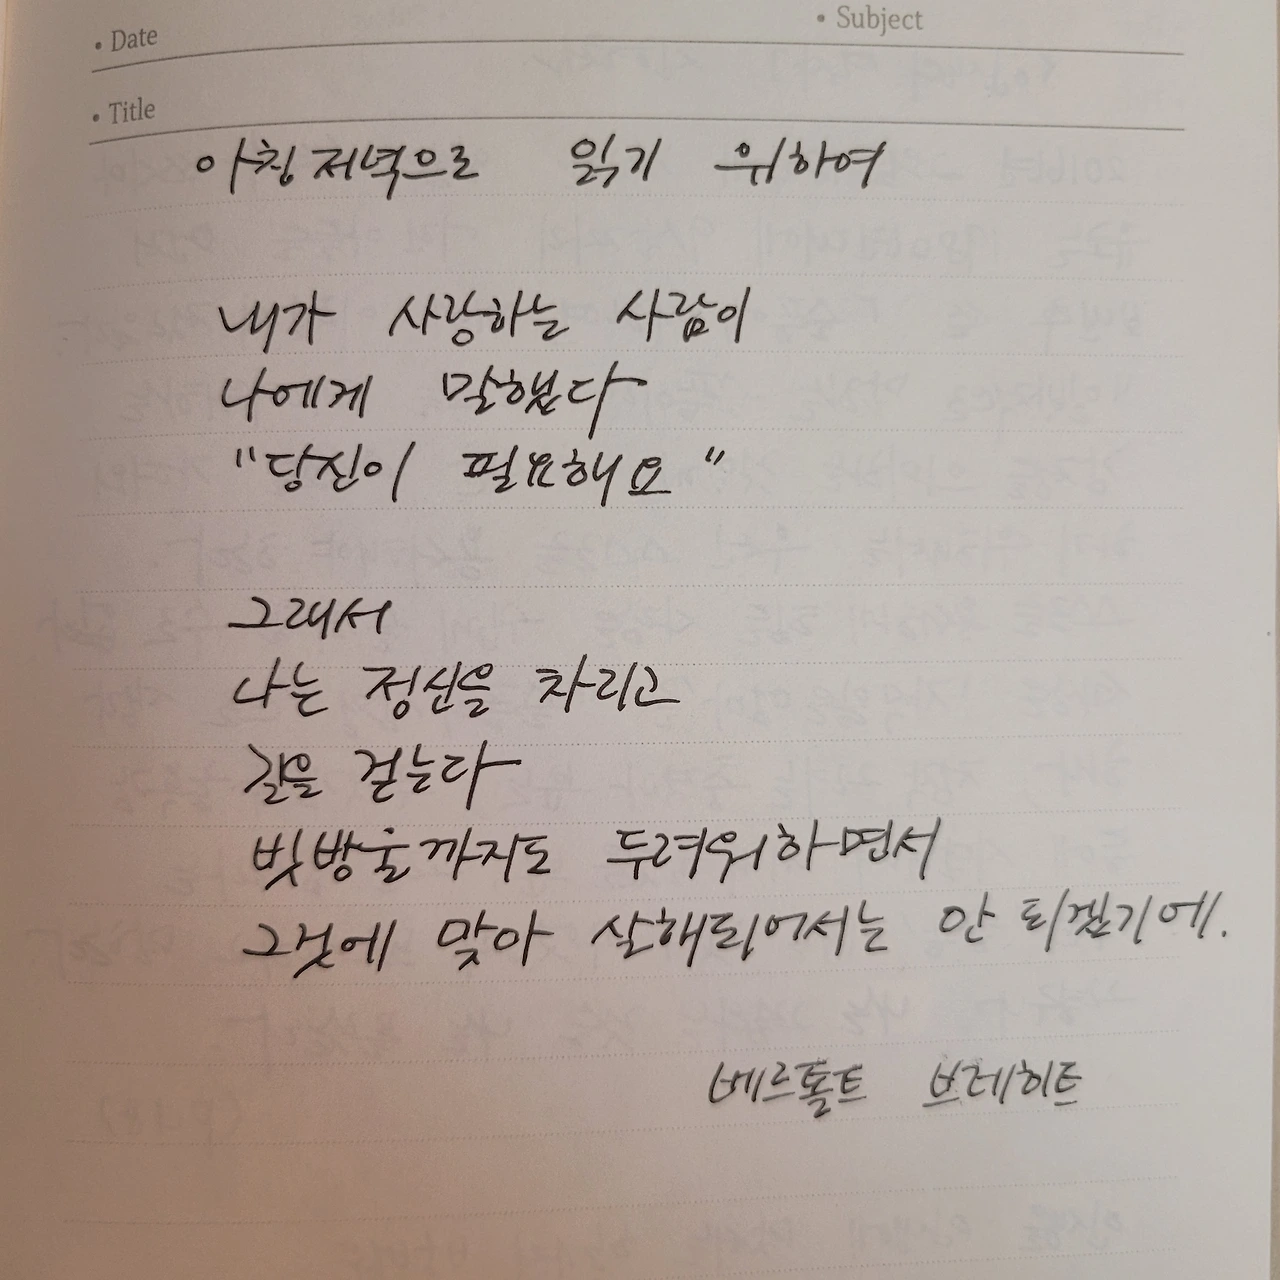 • Date
• Subject
• Title
아침저녁으로 읽기 위하여
내가 사랑하는 사람이
나에게 말했다
"당신이 필요해요"
그래서
나는 정신을 차리고
길을 걷는다
빗방울까지도 두려워하면서
그것에 맞아 살해되어서는 안 되겠기에.
베르톨트 브레히트